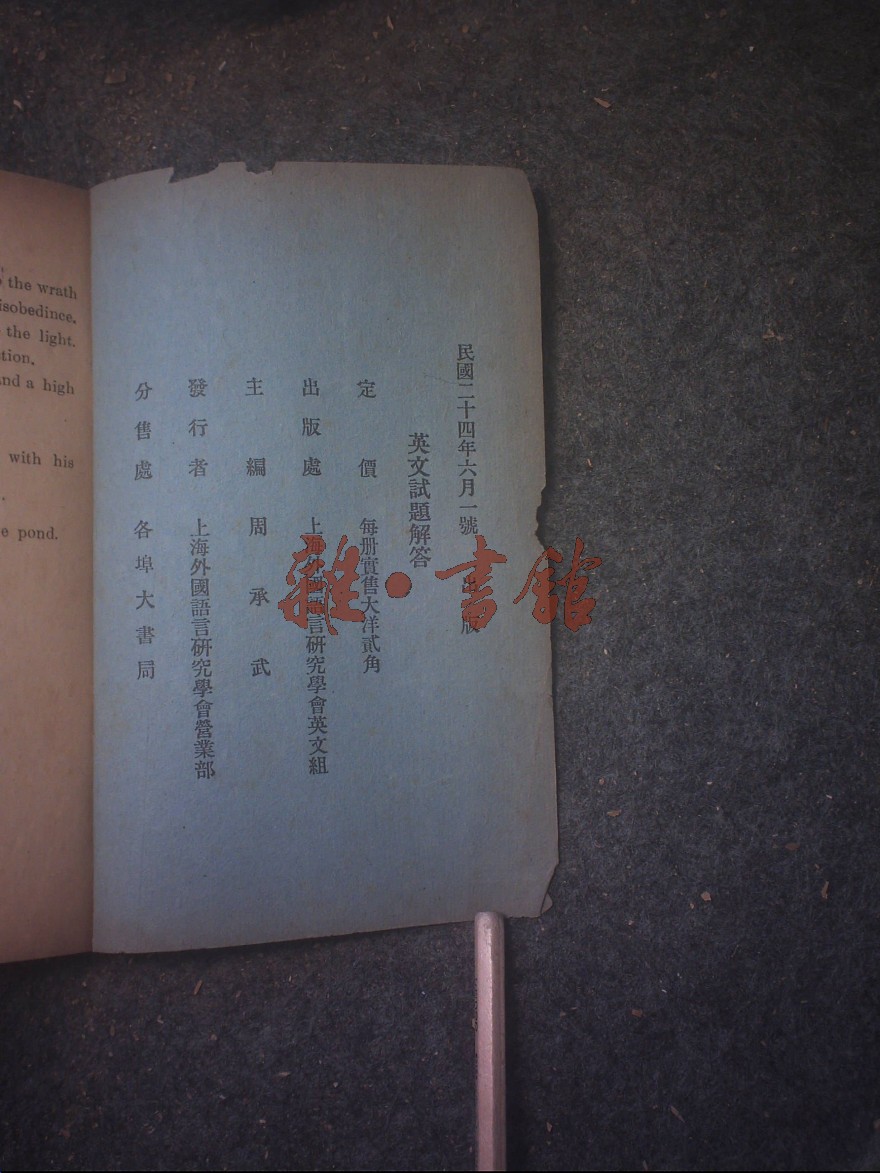 the wrath
isobedince.
the light.
tion.
nd a high
with his
e pond.
民國二十四年六月一號出版
英文試題解答
定價 每册實售大洋貳角
出版處 上海外國語言研究學會英文組
主編 周承武
發行者 上海外國語言研究學會營業部
分售處 各埠大書局
雜·書館